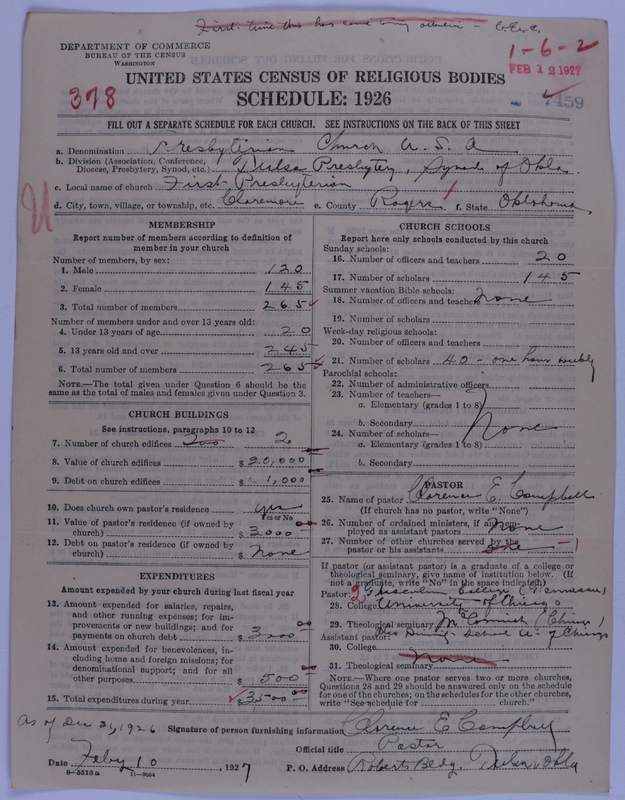 First time this has come my
DEPARTMENT OF COMMERCE
BUREAU OF THE CENSUS
WASHINGTON
1-6-2
FEB 12 1927
UNITED STATES CENSUS OF RELIGIOUS BODIES
378
SCHEDULE: 1926
7459
FILL OUT A SEPARATE SCHEDULE FOR EACH CHURCH. SEE INSTRUCTIONS ON THE BACK OF THIS SHEET
a. Denomination Presbyterian Church U.S.A
b. Division (Association, Conference, Diocese, Presbytery, Synod, etc.) Tulsa Presbytery, Synod of Okla.
c. Local name of church First Presbyterian
d. City, town, village, or township, etc. Claremore e. County Rogers f. State Oklahoma
MEMBERSHIP
Report number of members according to definition of
member in your church
Number of members, by sex:
1. Male 120
2. Female 145
3. Total number of members 265
Number of members under and over 13 years old:
4. Under 13 years of age 20
5. 13 years old and over 245
6. Total number of members 265
NOTE.—The total given under Question 6 should be the
same as the total of males and females given under Question 3.
CHURCH BUILDINGS
See instructions, paragraphs 10 to 12
7. Number of church edifices two 2
8. Value of church edifices $20,000
9. Debt on church edifices $1,000
10. Does church own pastor's residence yes
Yes or No
11. Value of pastor's residence (if owned by
church) $3000
12. Debt on pastor's residence (if owned by
church) $None
EXPENDITURES
Amount expended by your church during last fiscal year
13. Amount expended for salaries, repairs,
and other running expenses; for im-
provements or new buildings; and for
payments on church debt $3000
14. Amount expended for benevolences, in-
cluding home and foreign missions; for
denominational support; and for all
other purposes $500
15. Total expenditures during year $3500
CHURCH SCHOOLS
Report here only schools conducted by this church
Sunday schools:
16. Number of officers and teachers 20
17. Number of scholars 145
Summer vacation Bible schools:
18. Number of officers and teachers None
19. Number of scholars
Week-day religious schools:
20. Number of officers and teachers
21. Number of scholars 40 - one hour weekly
Parochial schools:
22. Number of administrative officers
23. Number of teachers—
a. Elementary (grades 1 to 8)
b. Secondary None
24. Number of scholars—
a. Elementary (grades 1 to 8)
b. Secondary
PASTOR
25. Name of pastor Clarence E. Campbell
(If church has no pastor, write "None")
26. Number of ordained ministers, if any, em-
ployed as assistant pastors None
27. Number of other churches served by the
pastor or his assistants one 1
If pastor (or assistant pastor) is a graduate of a college or
theological seminary, give name of institution below. (If
not a graduate, write "No" in the space indicated)
Pastor: 2 Tusculum College (Tennessee)
28. College University of Chicago
29. Theological seminary McCormick (Chicago)
Assistant pastor: Divinity School U. of Chicago
30. College
31. Theological seminary None
NOTE.—Where one pastor serves two or more churches,
Questions 28 and 29 should be answered only on the schedule
for one of the churches; on the schedules for the other churches,
write "See schedule for church."
as of Dec 31, 1926
Signature of person furnishing information Clarence E Campbell
Official title Pastor
Date Feby 10, 1927 P. O. Address Roberts Bldg. Tulsa Okla
8-5518a 11-9684